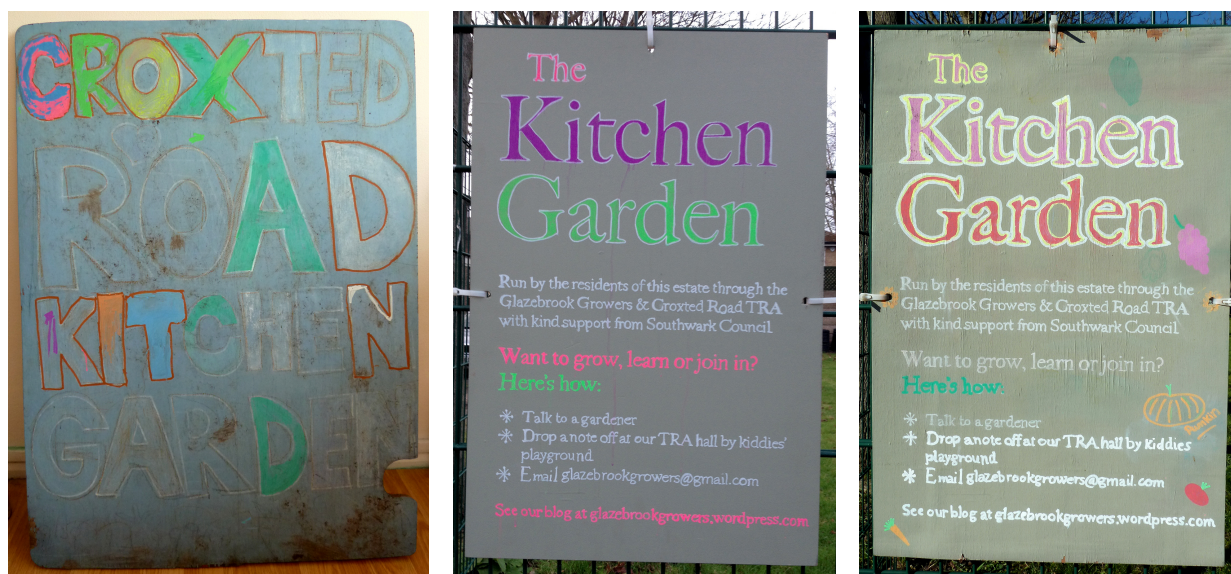 CROXTED
ROAD
KITCHEN
GARDEN
The
Kitchen
Garden
Run by the residents of this estate through the
Glazebrook Growers & Croxted Road TRA
with kind support from Southwark Council
Want to grow, learn or join in?
Here's how:
* Talk to a gardener
* Drop a note off at our TRA hall by kiddies'
playground
* Email glazebrookgrowers@gmail.com
See our blog at glazebrookgrowers.wordpress.com
The
Kitchen
Garden
Run by the residents of this estate through the
Glazebrook Growers & Croxted Road TRA
with kind support from Southwark Council
Want to grow, learn or join in?
Here's how:
* Talk to a gardener
* Drop a note off at our TRA hall by kiddies
playground
* Email glazebrookgrowers@gmail.com
Pumkin
See our blog at glazebrookgrowers.wordpress.com